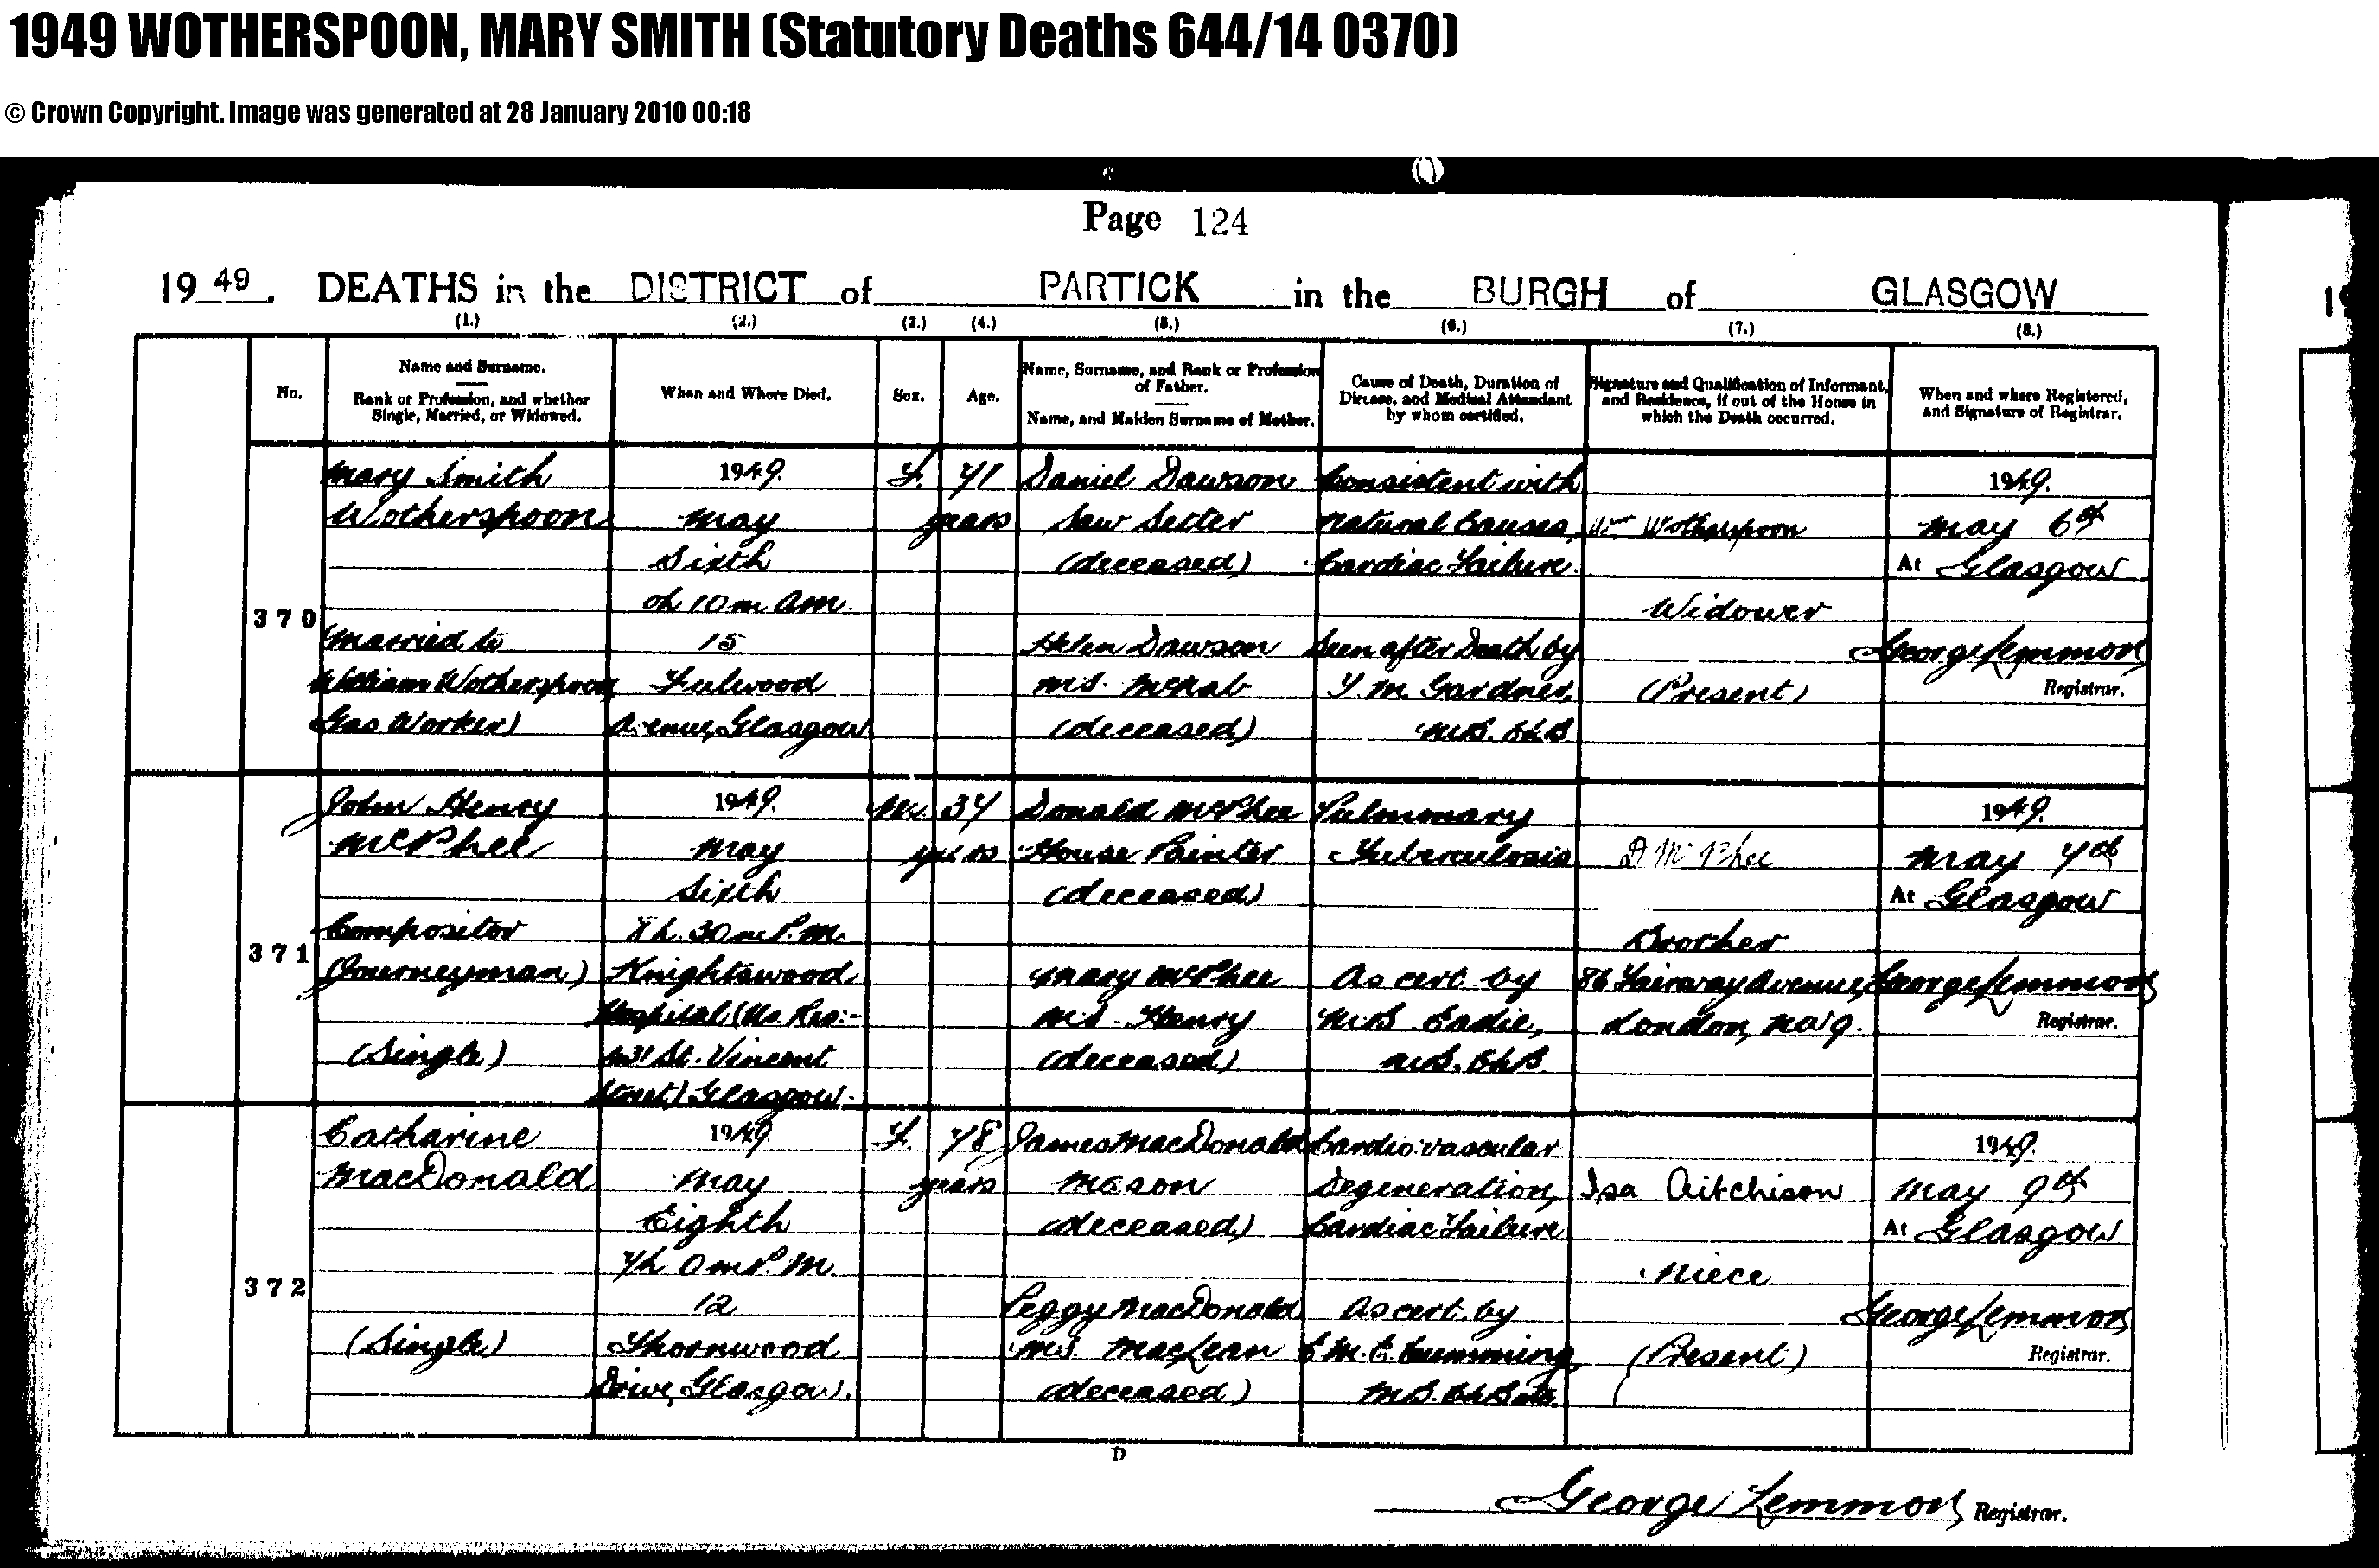 1949 WOTHERSPOON, MARY SMITH (Statutory Deaths 644/14 0370)
© Crown Copyright. Image was generated at 28 January 2010 00:18
Page 124
1949. DEATHS in the DISTRICT of PARTICK in the BURGH of GLASGOW
(1.) (2.) (3.) (4.) (5.) (6.) (7.) (8.)
No.
Name and Surname.
Rank or Profession, and whether
Single, Married, or Widowed.
When and Where Died.
Sex.
Age.
Name, Surname, and Rank or Profession
of Father.
Name, and Maiden Surname of Mother.
Cause of Death, Duration of
Disease, and Medical Attendant
by whom certified.
Signature and Qualification of Informant,
and Residence, if out of the House in
which the Death occurred.
When and where Registered,
and Signature of Registrar.
370
Mary Smith
Wotherspoon
(Married to
William Wotherspoon
Gas Worker)
1949.
May
Sixth
0h 10m A.M.
15
Fulwood
Avenue, Glasgow
F.
71
years
Daniel Dawson
Saw Setter
(deceased)
Helen Dawson
M.S. McNab
(deceased)
Consistent with
Natural Causes,
Cardiac Failure.
Seen after Death by
Y M. Gardner,
M.B. Ch.B.
Wm Wotherspoon
Widower
(Present)
1949.
May 6th
At Glasgow
George Lemmon
Registrar.
371
John Henry
McPhee
Compositor
(Journeyman)
(Single)
1949.
May
Sixth
8h. 30m P.M.
Knightswood
Hospital (Us. Res:-
St. Vincent
Street) Glasgow.
M.
37
years
Donald McPhee
House Painter
(deceased)
Mary McPhee
M.S. Henry
(deceased)
Pulmonary
Tuberculosis
As cert. by
M.B. Eadie,
M.B. Ch.B.
D McPhee
Brother
86 Fairway Avenue,
London, N.W.9.
1949.
May 7th
At Glasgow
George Lemmon
Registrar.
372
Catharine
MacDonald
(Single)
1949.
May
Eighth
7h 0m P.M.
12
Thornwood
Drive, Glasgow.
F.
78
years
James MacDonald
Mason
(deceased)
Peggy MacDonald
M.S. MacLean
(deceased)
Cardio-vascular
Degeneration,
Cardiac Failure
As cert. by
C M. C. Cumming,
M.B. Ch.B. etc.
Isa Aitchison
Niece
(Present)
1949.
May 9th
At Glasgow
George Lemmon
Registrar.
D
George Lemmon Registrar.